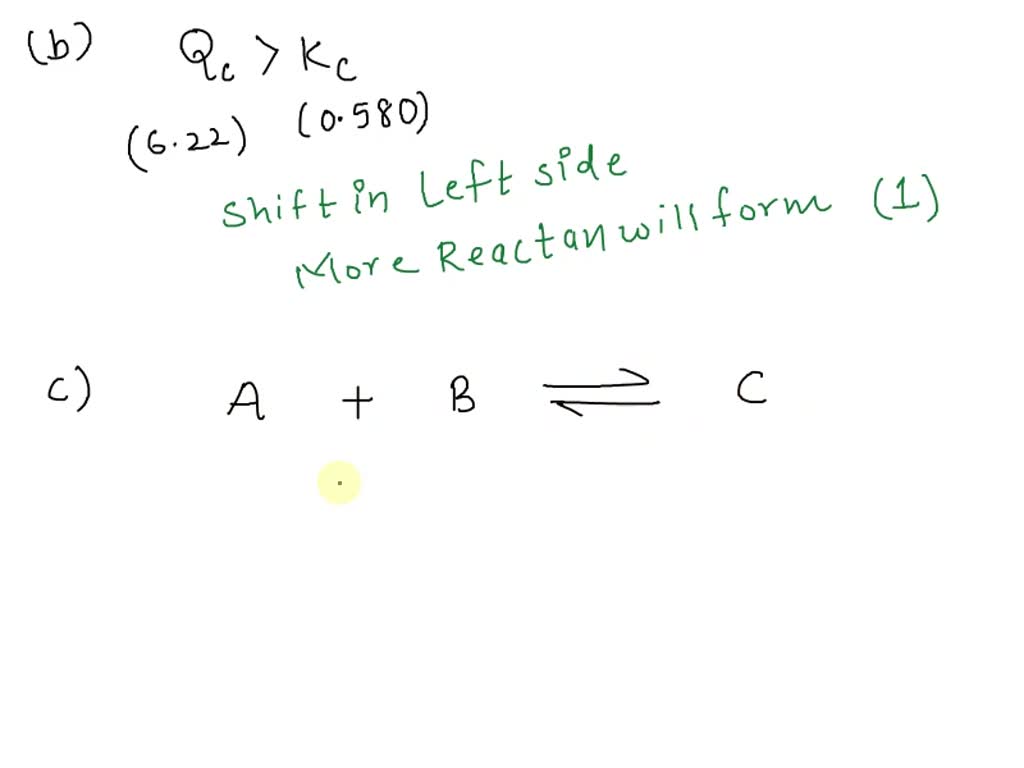 (b) Qc > Kc
(6.22) (0.580)
Shift in Left side
More Reactan will form (1)
c) A + B ⇌ C